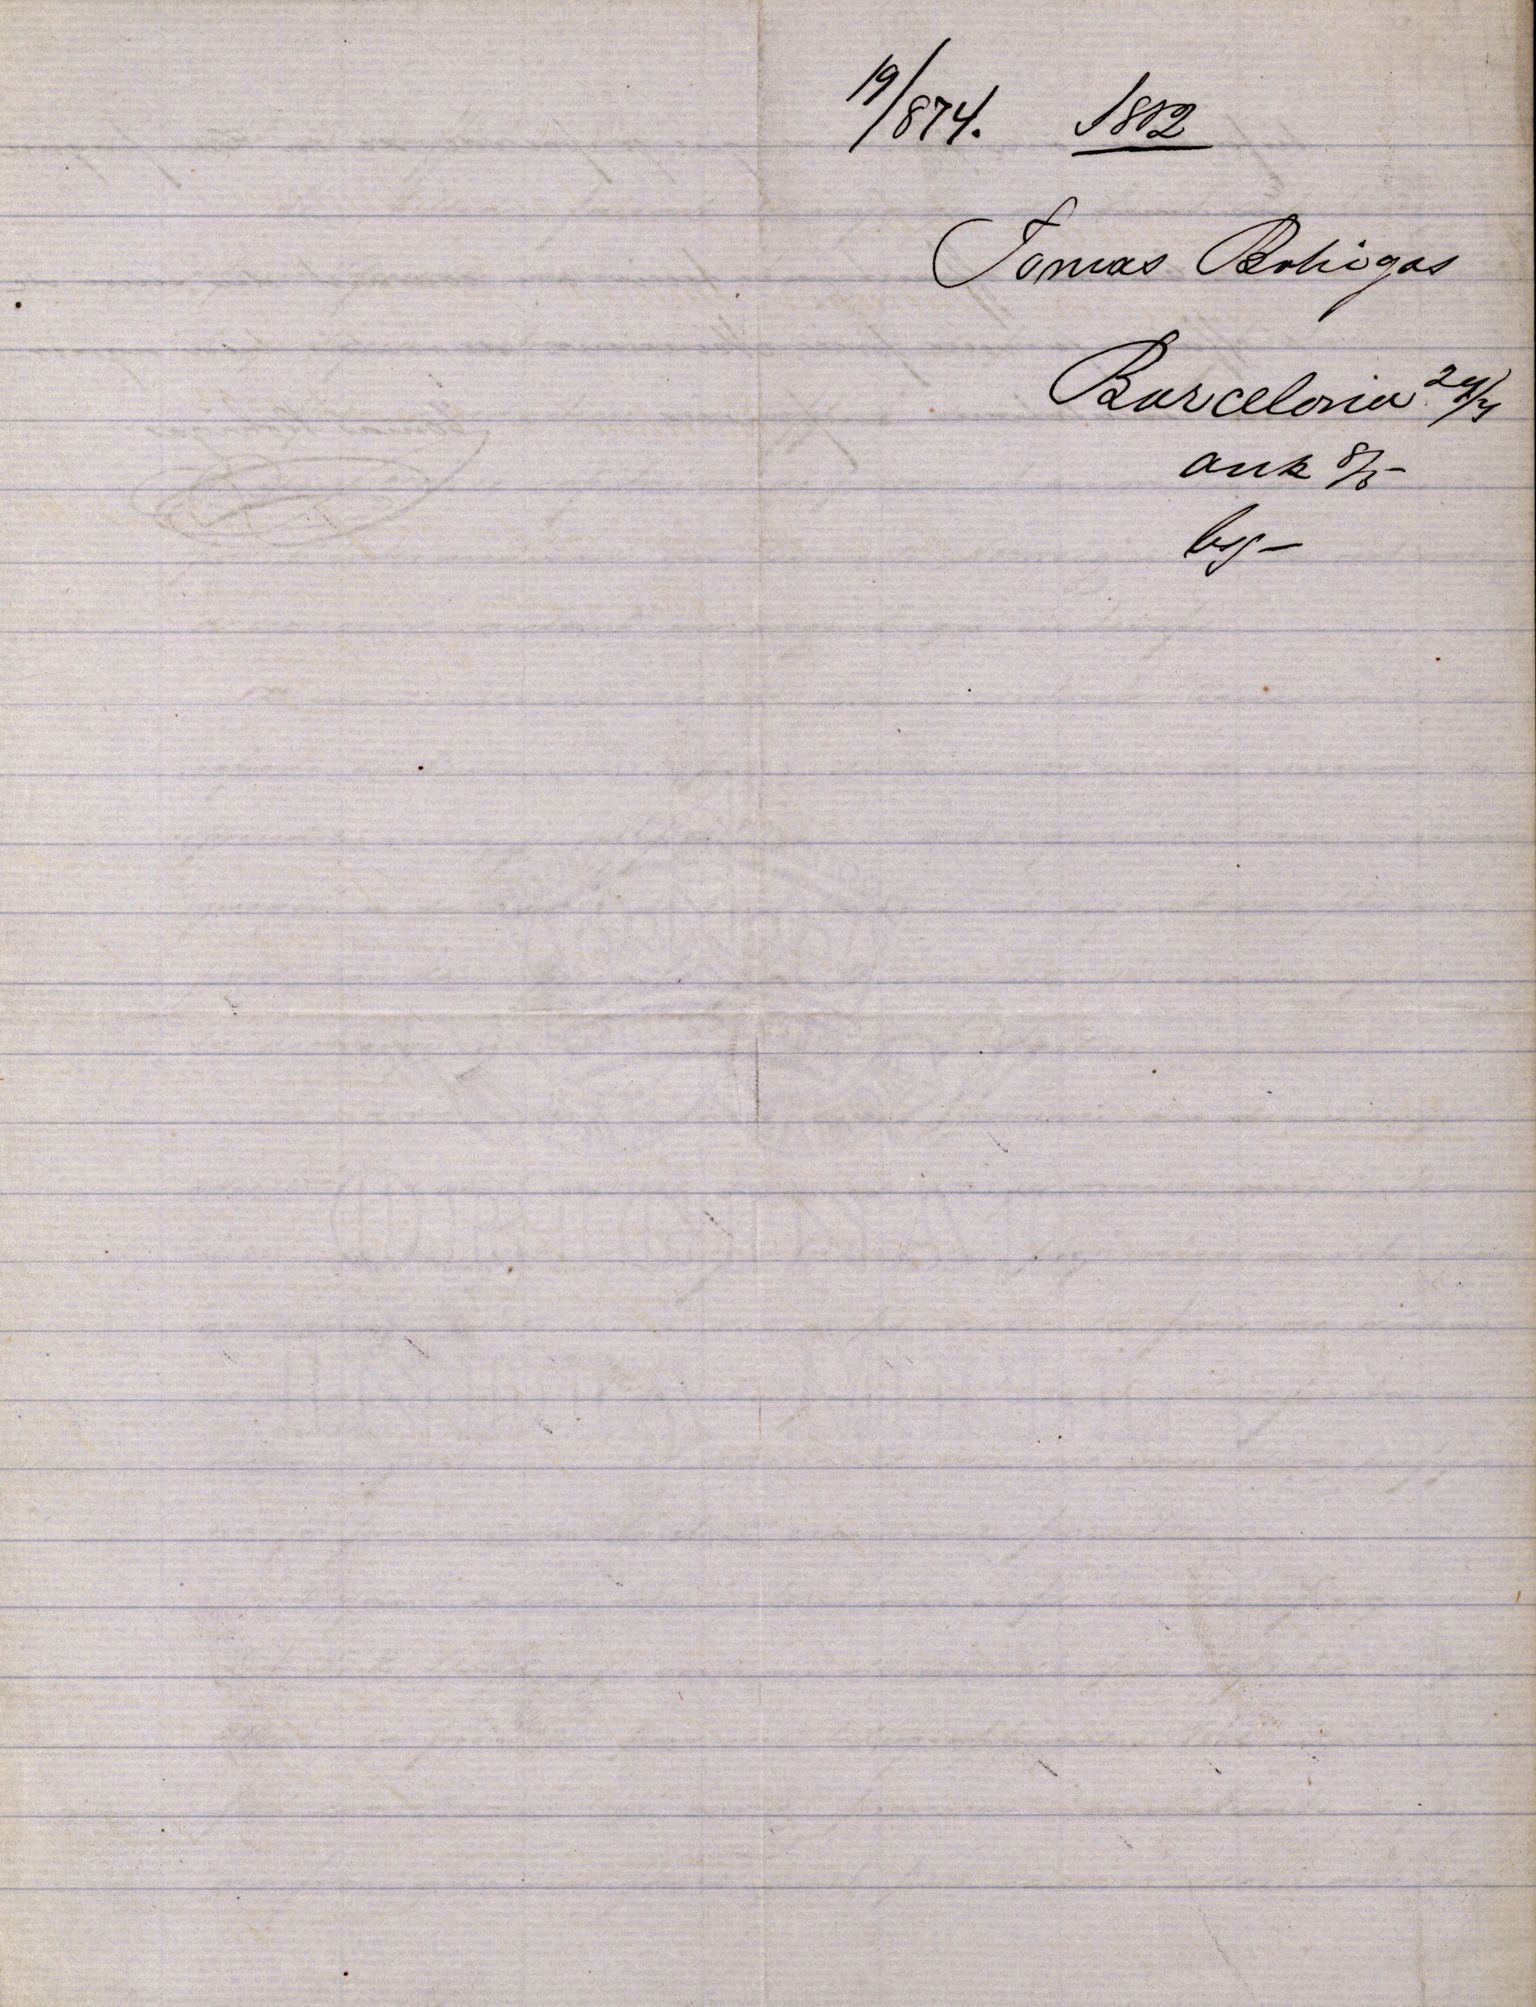 19/874. 1882
Tomas Bohigas
Barcelona 29/4
ank 8/5